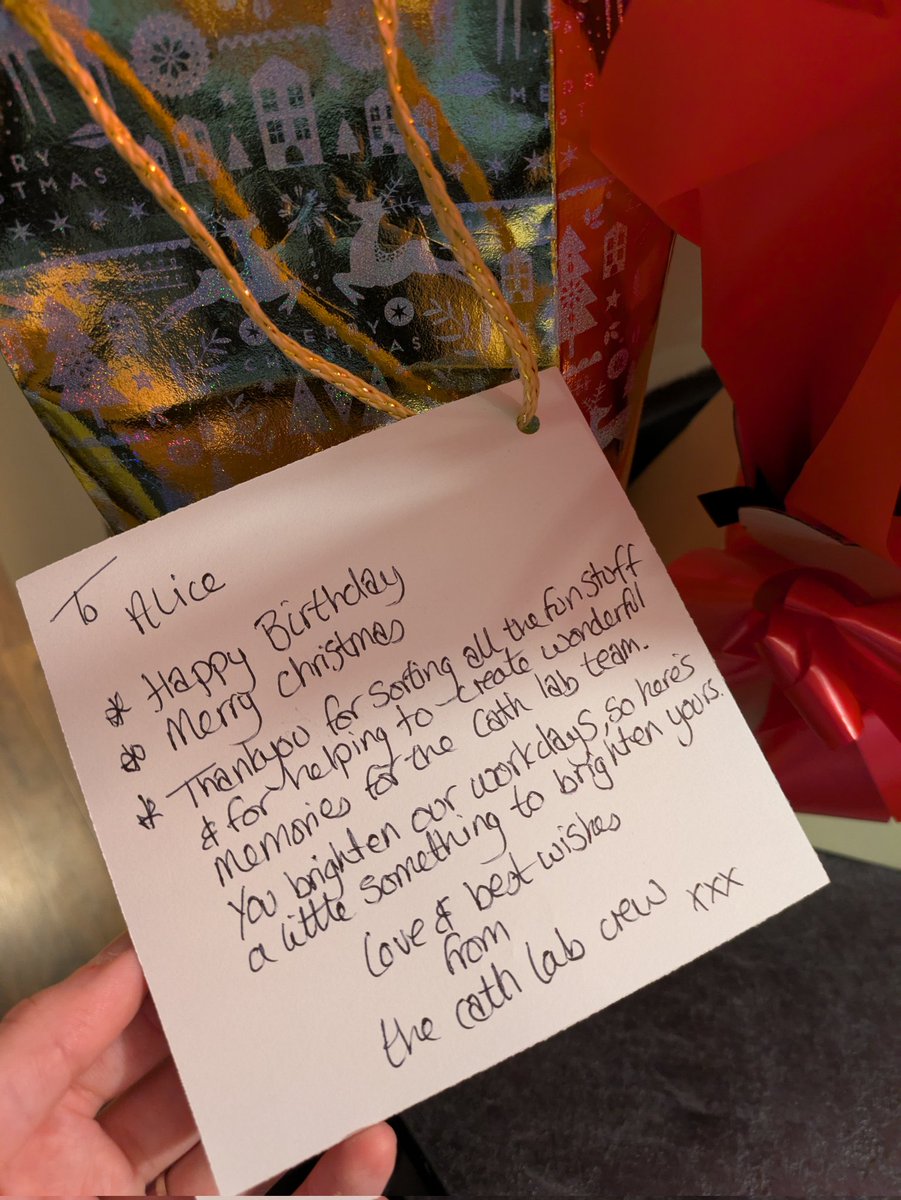 MERRY
CHRISTMAS
To Alice
* Happy Birthday
* Merry christmas
* Thankyou for sorting all the fun stuff
& for helping to create wonderful
memories for the cath lab team.
You brighten our workdays, so here's
a little something to brighten yours.
Love & best wishes
from
the cath lab crew xxx